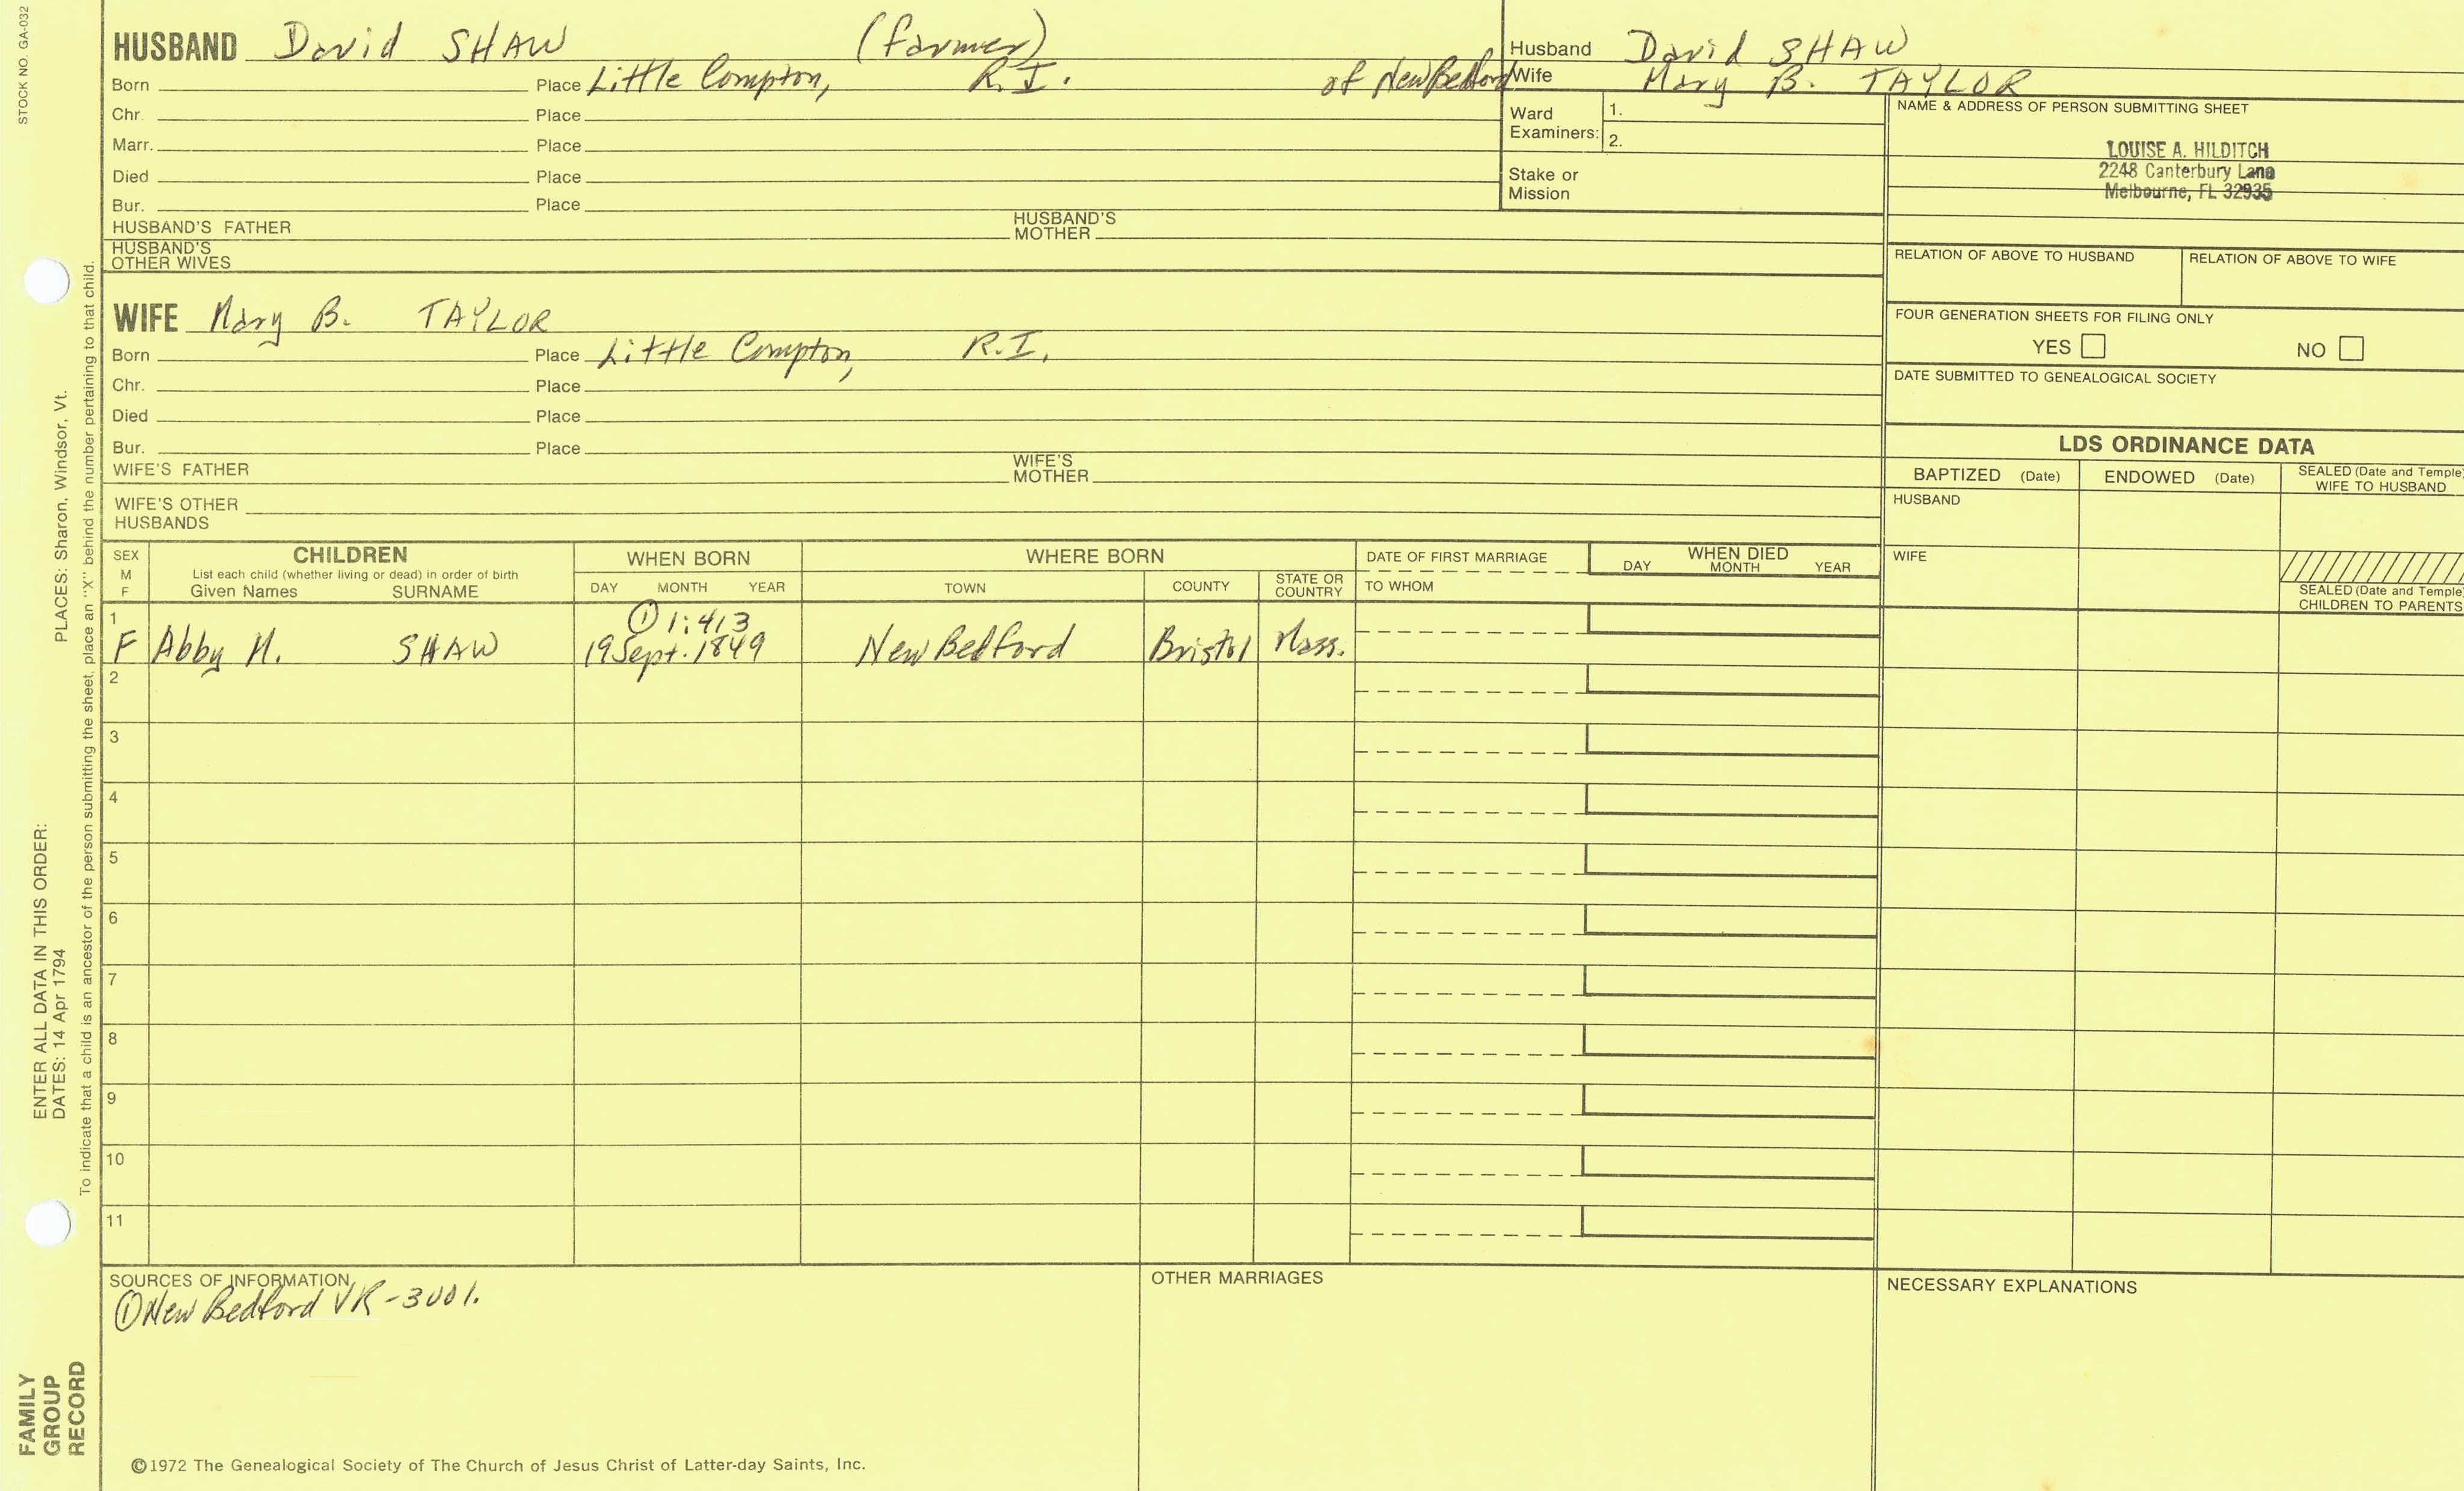 STOCK NO. GA-032
HUSBAND David SHAW (farmer)
Born Place Little Compton, R.I. of New Bedford
Chr. Place
Marr. Place
Died Place
Bur. Place
HUSBAND'S FATHER HUSBAND'S MOTHER
HUSBAND'S OTHER WIVES
Husband David SHAW
Wife Mary B. TAYLOR
Ward Examiners: 1.
2.
Stake or Mission
NAME & ADDRESS OF PERSON SUBMITTING SHEET
LOUISE A. HILDITCH
2248 Canterbury Lane
Melbourne, FL 32935
RELATION OF ABOVE TO HUSBAND RELATION OF ABOVE TO WIFE
FOUR GENERATION SHEETS FOR FILING ONLY
YES NO
DATE SUBMITTED TO GENEALOGICAL SOCIETY
WIFE Mary B. TAYLOR
Born Place Little Compton, R.I.
Chr. Place
Died Place
Bur. Place
WIFE'S FATHER WIFE'S MOTHER
WIFE'S OTHER HUSBANDS
LDS ORDINANCE DATA
BAPTIZED (Date) ENDOWED (Date) SEALED (Date and Temple) WIFE TO HUSBAND
HUSBAND
WIFE
SEALED (Date and Temple) CHILDREN TO PARENTS
SEX M F
CHILDREN
List each child (whether living or dead) in order of birth
Given Names SURNAME
WHEN BORN
DAY MONTH YEAR
WHERE BORN
TOWN COUNTY STATE OR COUNTRY
DATE OF FIRST MARRIAGE
TO WHOM
WHEN DIED
DAY MONTH YEAR
1 ① 1:413
F Abby H. SHAW 19 Sept. 1849 New Bedford Bristol Mass.
2
3
4
5
6
7
8
9
10
11
SOURCES OF INFORMATION
① New Bedford VR-3001.
OTHER MARRIAGES
NECESSARY EXPLANATIONS
©1972 The Genealogical Society of The Church of Jesus Christ of Latter-day Saints, Inc.
FAMILY GROUP RECORD
ENTER ALL DATA IN THIS ORDER:
DATES: 14 Apr 1794 PLACES: Sharon, Windsor, Vt.
To indicate that a child is an ancestor of the person submitting the sheet, place an "X" behind the number pertaining to that child.